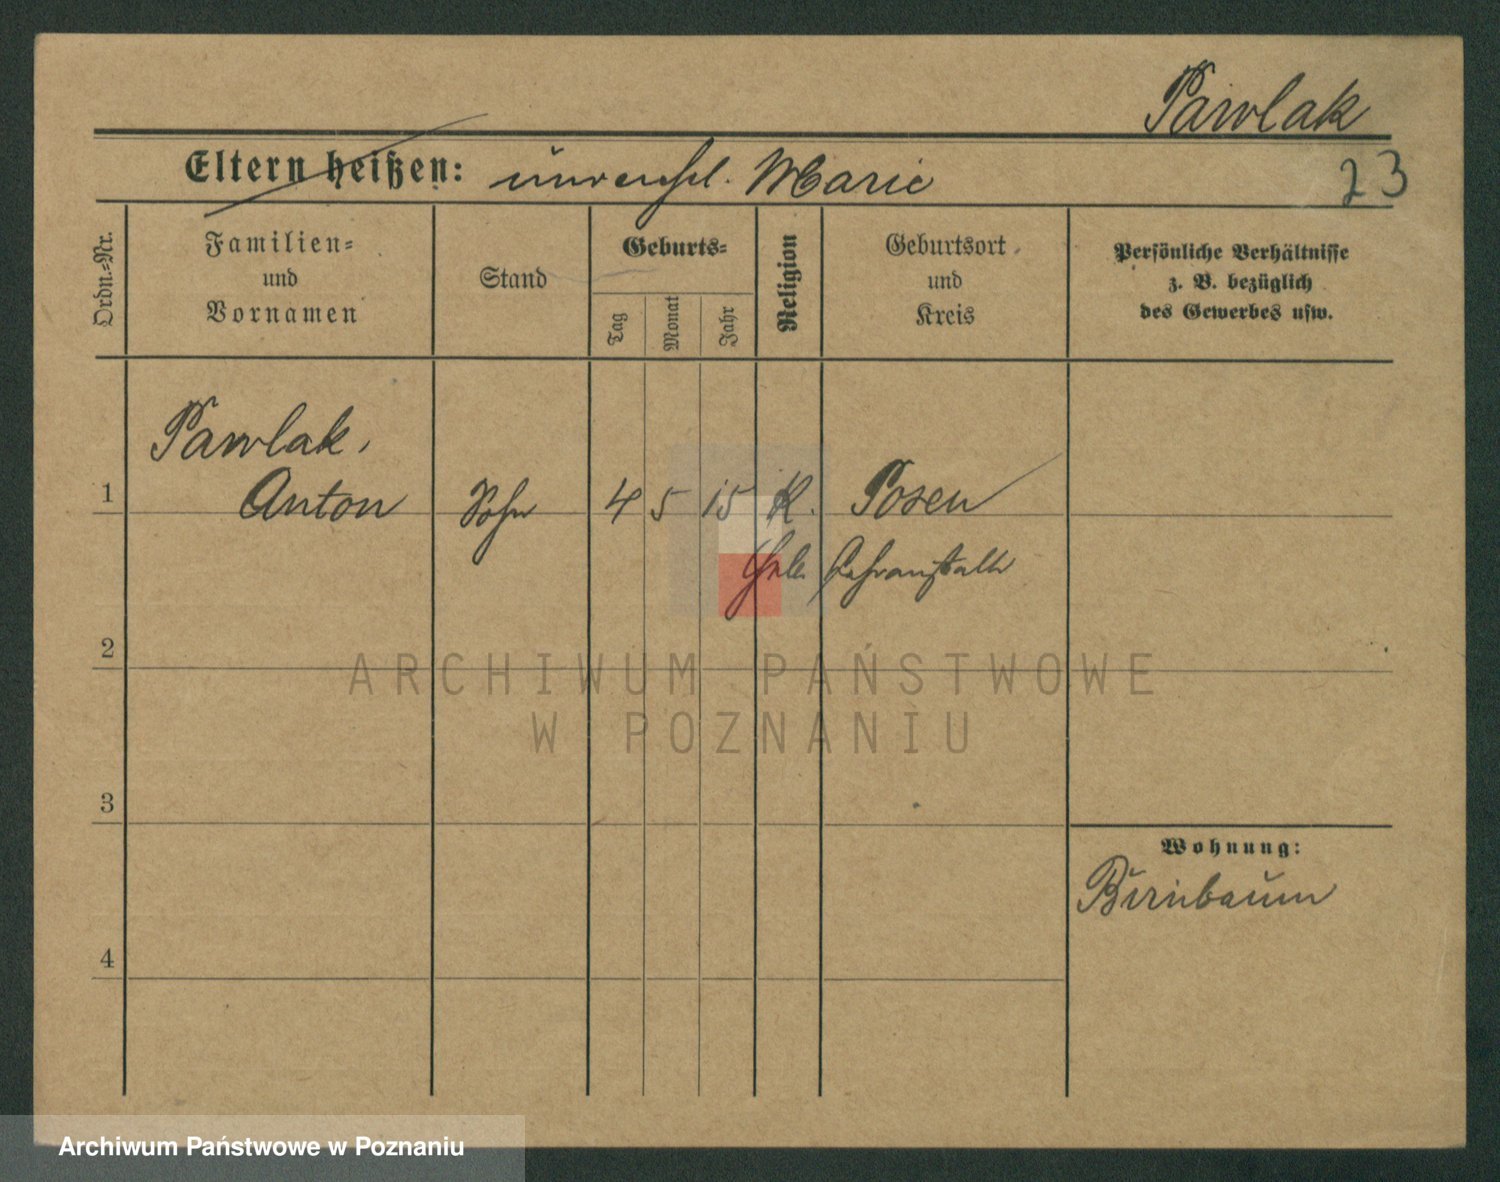 Pawlak
Eltern heißen: unverehel. Marie
23
Ordn.-Nr.
Familien-
und
Vornamen
Stand
Geburts-
Tag
Monat
Jahr
Religion
Geburtsort
und
Kreis
Persönliche Verhältnisse
z. B. bezüglich
des Gewerbes usw.
Pawlak,
1 Anton Sohn 4 5 15 K. Posen
Hebl. Lehranstalt
2
ARCHIWUM PAŃSTWOWE
W POZNANIU
3
Wohnung:
Birnbaum
4
Archiwum Państwowe w Poznaniu